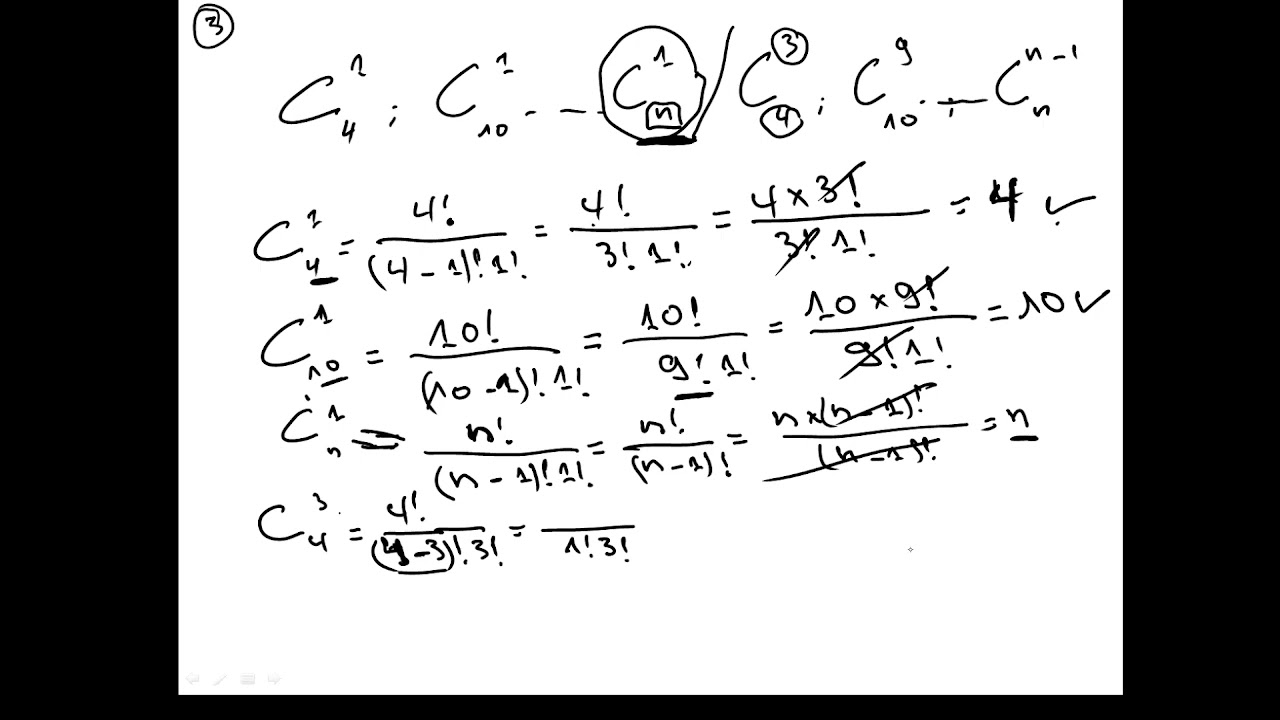 ③
C₄¹ ; C₁₀¹ - — C¹ₙ / C₄³ ; C₁₀⁹ ; — Cₙⁿ⁻¹
C₄¹ = 4! / (4-1)! 1! = 4! / 3! 1! = 4 × 3! / 3! 1! = 4 ✓
C₁₀¹ = 10! / (10-1)! 1! = 10! / 9! 1! = 10 × 9! / 9! 1! = 10 ✓
Cₙ¹ = n! / (n-1)! 1! = n! / (n-1)! = n × (n-1)! / (n-1)! = n
C₄³ = 4! / (4-3)! 3! = / 1! 3!